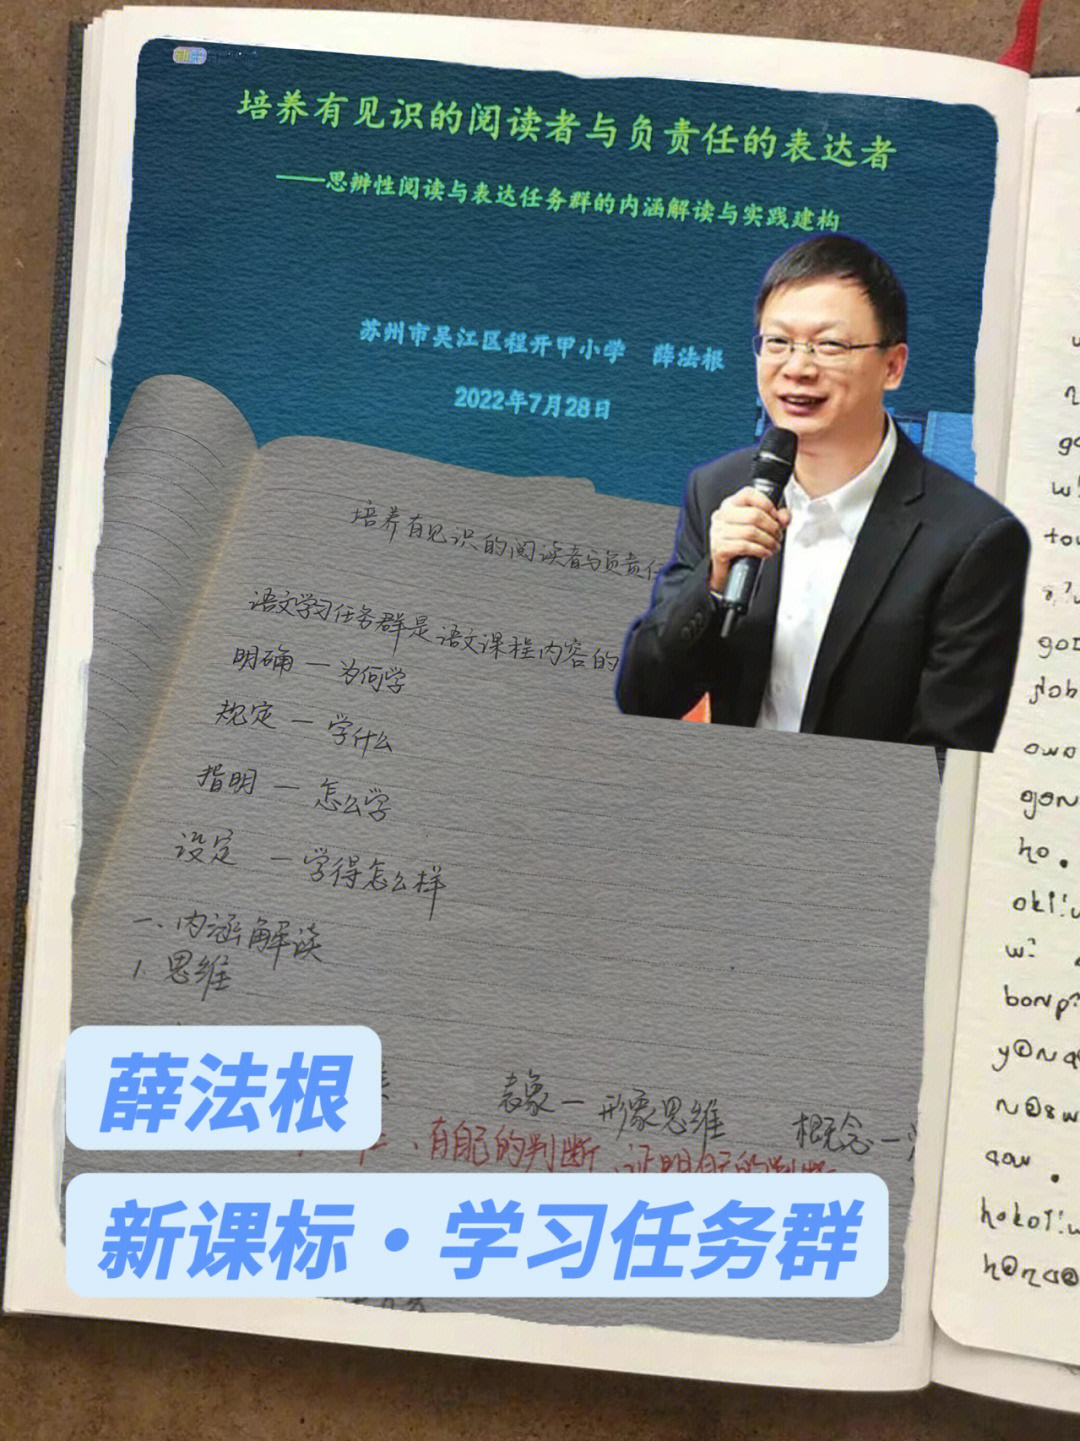 培养有见识的阅读者与负责任的表达者
——思辨性阅读与表达任务群的内涵解读与实践建构
苏州市吴江区程开甲小学 薛法根
2022年7月28日
培养有见识的阅读者与负责任
语文学习任务群是语文课程内容的
明确 — 为何学
规定 — 学什么
指明 — 怎么学
设定 — 学得怎么样
一、内涵解读
1. 思维
表象 — 形象思维 概念 —
有自己的判断、证明自己的判断
薛法根
新课标·学习任务群
w
go
w!
tou
got
owo
gon
ho.
oki!w
w:
bonp?